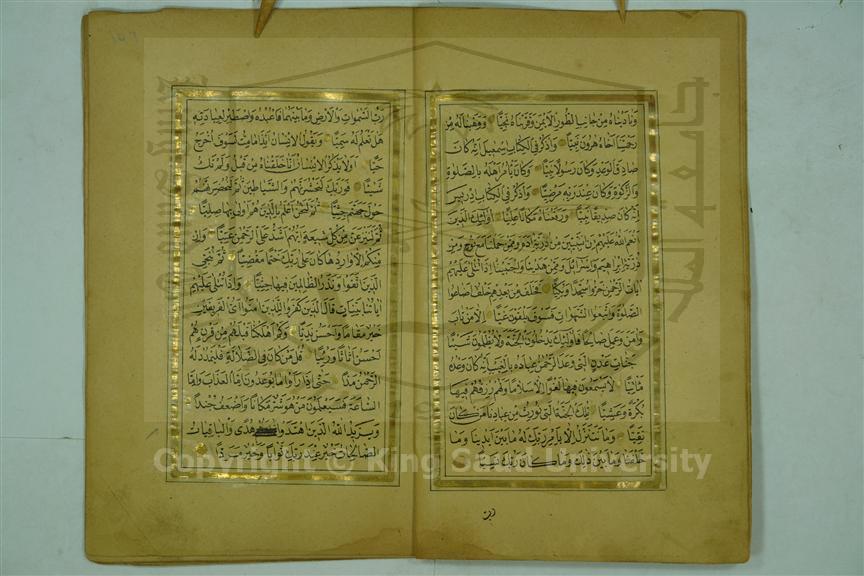 وناديناه من جانب الطور الايمن وقربناه نجيا ووهبنا له من
رحمتنا اخاه هرون نبيا واذكر في الكتاب اسمعيل انه كان
صادق الوعد وكان رسولا نبيا وكان يأمر اهله بالصلوة
والزكوة وكان عند ربه مرضيا واذكر في الكتاب ادريس
انه كان صديقا نبيا ورفعناه مكانا عليا اولئك الذين
انعم الله عليهم من النبيين من ذرية ادم وممن حملنا مع نوح ومن
ذرية ابراهيم واسرائل وممن هدينا واجتبينا اذا تتلى عليهم
ايات الرحمن خروا سجدا وبكيا فخلف من بعدهم خلف اضاعوا
الصلوة واتبعوا الشهوات فسوف يلقون غيا الا من تاب
وامن وعمل صالحا فاولئك يدخلون الجنة ولا يظلمون شيئا
جنات عدن التي وعد الرحمن عباده بالغيب انه كان وعده
مأتيا لا يسمعون فيها لغوا الا سلاما ولهم رزقهم فيها
بكرة وعشيا تلك الجنة التي نورث من عبادنا من كان
تقيا وما نتنزل الا بامر ربك له ما بين ايدينا وما
خلفنا وما بين ذلك وما كان ربك نسيا
رب
رب السموات والارض وما بينهما فاعبده واصطبر لعبادته
هل تعلم له سميا ويقول الانسان ائذا ما مت لسوف اخرج
حيا اولا يذكر الانسان انا خلقناه من قبل ولم يك
شيئا فوربك لنحشرنهم والشياطين ثم لنحضرنهم
حول جهنم جثيا ثم لنحن اعلم بالذين هم اولى بها صليا
ثم لننزعن من كل شيعة ايهم اشد على الرحمن عتيا وان
منكم الا واردها كان على ربك حتما مقضيا ثم ننجي
الذين اتقوا ونذر الظالمين فيها جثيا واذا تتلى عليهم
اياتنا بينات قال الذين كفروا للذين امنوا اي الفريقين
خير مقاما واحسن نديا وكم اهلكنا قبلهم من قرن هم
احسن اثاثا ورئيا قل من كان في الضلالة فليمدد له
الرحمن مدا حتى اذا راوا ما يوعدون اما العذاب واما
الساعة فسيعلمون من هو شر مكانا واضعف جندا
ويزيد الله الذين اهتدوا هدى والباقيات
الصالحات خير عند ربك ثوابا وخير مردا
Copyright © King Saud University